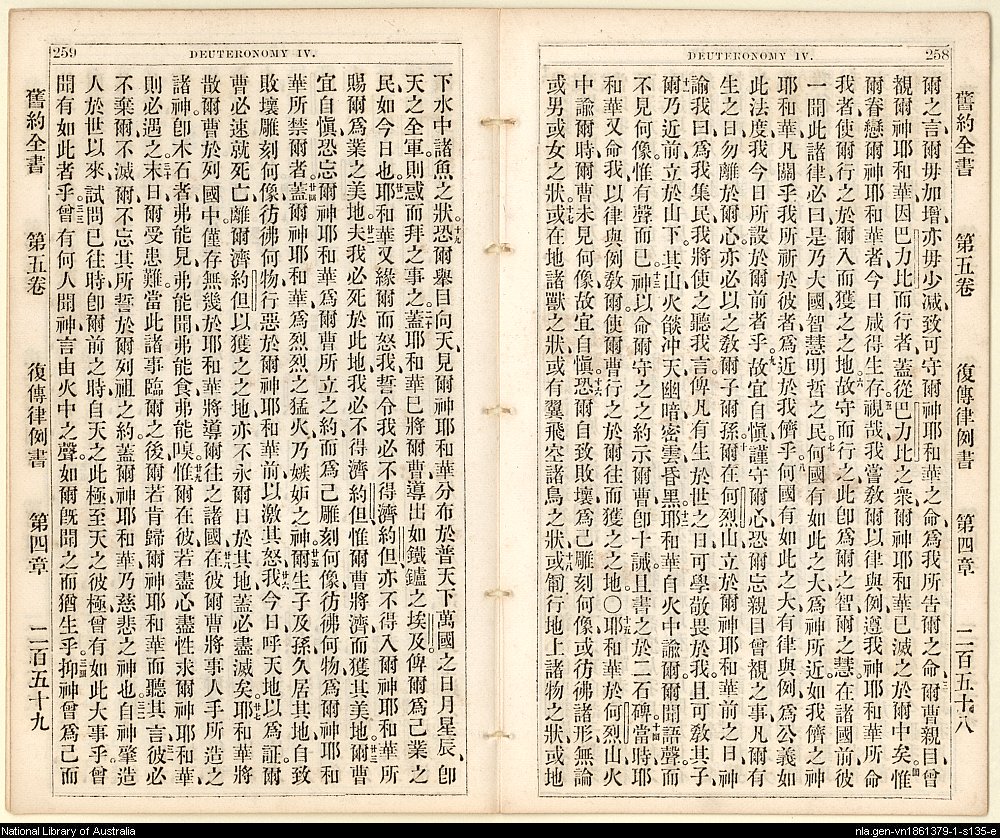 DEUTERONOMY IV.
258
舊約全書 第五卷 復傳律例書 第四章 二百五十八
爾之言、爾毋加增、亦毋少減、致可守爾神耶和華之命、爲我所吿爾之命、三爾曹親目曾
視爾神耶和華因巴力比而行者、蓋從巴力比之衆、爾神耶和華已滅之於爾中矣。四惟
爾眷戀爾神耶和華者、今日咸得生存。五視哉、我嘗敎爾以律與例、遵我神耶和華所命
我者、使爾行之於爾入而獲之之地。六故守而行之、此卽爲爾之智、爾之慧、在諸國前、彼
一聞此諸律、必曰、是乃大國、智慧明哲之民。七何國有如此之大、爲神所近、如我儕之神
耶和華、凡關乎我所祈於彼者、爲近於我儕乎。八何國有如此之大、有律與例、爲公義、如
此法度、我今日所設於爾前者乎。九故宜自愼、謹守爾心、恐爾忘親目曾視之事、凡爾有
生之日、勿離於爾心、亦必以之敎爾子爾孫。十爾在何烈山立於爾神耶和華前之日、神
諭我曰、爲我集民、我將使之聽我言、俾凡有生於世之日、可學敬畏於我、且可敎其子。
十一爾乃近前、立於山下、其山火燄沖天、幽暗密雲昏黑。十二耶和華自火中諭爾、爾聞語聲、而
不見何像、惟有聲而已。十三神以命爾守之之約示爾曹、卽十誡、且書之於二石碑。十四當時耶
和華又命我、以律與例敎爾、使爾曹行之於爾往而獲之之地。〇十五耶和華於何烈山火
中諭爾時、爾曹未見何像、故宜自愼。十六恐爾自致敗壞、爲己雕刻何像、或彷彿諸形、無論
或男或女之狀。十七或在地諸獸之狀、或有翼飛空諸鳥之狀。十八或匍行地上諸物之狀、或地
DEUTERONOMY IV.
259
下水中諸魚之狀。十九恐爾舉目向天、見爾神耶和華分布於普天下萬國之日月星辰、卽
天之全軍、則惑而拜之事之。二十蓋耶和華已將爾曹導出如鐵鑪之埃及、俾爾爲己業之
民、如今日也。廿一耶和華又緣爾而怒我、誓令我必不得濟約但、亦不得入爾神耶和華所
賜爾爲業之美地。廿二夫我必死於此地、我必不得濟約但、惟爾曹將濟而獲其美地。廿三爾曹
宜自愼、恐忘爾神耶和華爲爾曹所立之約、而爲己雕刻何像、彷彿何物、爲爾神耶和
華所禁爾者。廿四蓋爾神耶和華、爲烈烈之猛火、乃嫉妬之神。廿五爾生子及孫、久居其地、自致
敗壞、雕刻何像、彷彿何物、行惡於爾神耶和華前、以激其怒。廿六我今日呼天地以爲証、爾
曹必速就死亡、離爾濟約但以獲之之地、亦不永爾日於其地、蓋必盡滅矣。廿七耶和華將
散爾曹於列國中、僅存無幾於耶和華將導爾往之諸國。廿八在彼爾曹將事人手所造之
諸神、卽木石者、弗能見、弗能聞、弗能食、弗能嗅。廿九惟爾在彼、若盡心盡性求爾神耶和華、
則必遇之。三十末日爾受患難、當此諸事臨爾之後、爾若肯歸爾神耶和華、而聽其言、三一彼必
不棄爾、不滅爾、不忘其所誓於爾列祖之約、蓋爾神耶和華、乃慈悲之神也。三二自神肇造
人於世以來、試問已往時、卽爾前之時、自天之此極、至天之彼極、曾有如此大事乎、曾
聞有如此者乎。三三曾有何人聞神言由火中之聲、如爾旣聞之、而猶生乎。三四抑神曾爲己而
舊約全書 第五卷 復傳律例書 第四章 二百五十九
National Library of Australia
nla.gen-vn1861379-1-s135-e